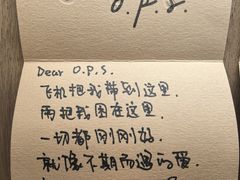 O.P.S.
Dear O.P.S.
飞机把我带到这里.
雨把我困在这里.
一切都刚刚好.
就像不期而遇的爱.